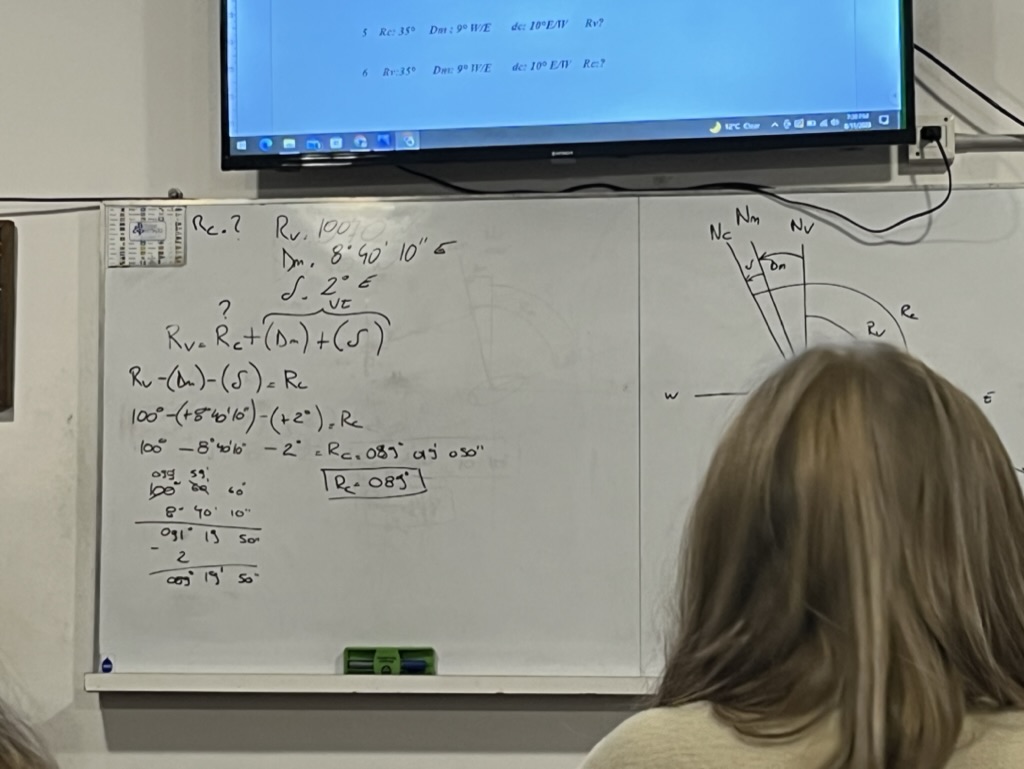 5 Rc: 35° Dm: 9° W/E dc: 10°E/W Rv?
6 Rv:35° Dm: 9° W/E dc: 10° E/W Rc:?
12°C Clear
Rc.? Rv. 100
Dm. 8° 40' 10" E
δ. 2° E
?
VE
Rv = Rc + (Dm) + (δ)
Rv - (Dm) - (δ) = Rc
100° - (+8°40'10") - (+2°) = Rc
100° - 8°40'10" - 2° = Rc = 089° 019' 050"
Rc = 089°
099 59'
100° 60 60"
8° 40' 10"
091° 19 50"
- 2
089° 19' 50"
Nc Nm Nv
δ Dm
Rc
Rv
W E